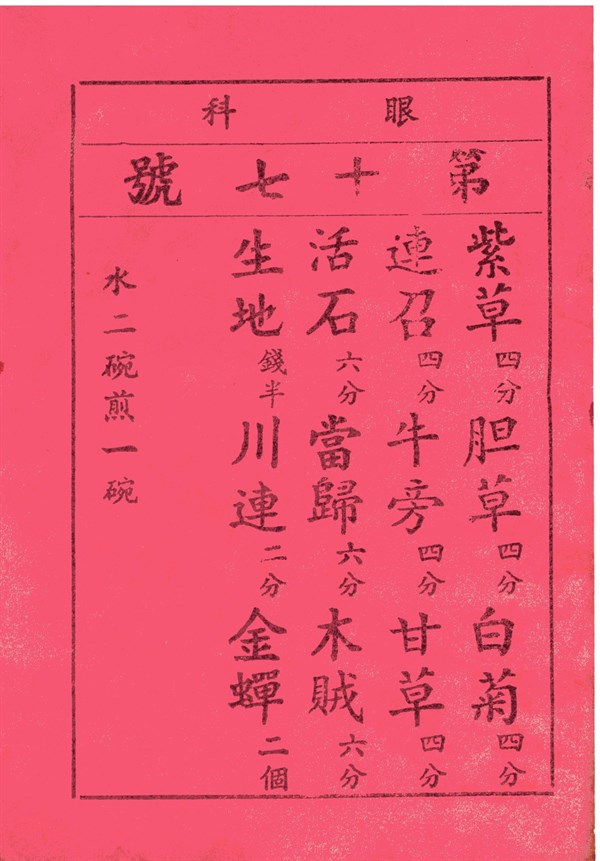 眼科
第十七號
紫草四分 胆草四分 白菊四分
連召四分 牛旁四分 甘草四分
活石六分 當歸六分 木賊六分
生地錢半 川連二分 金蟬二個
水二碗煎一碗